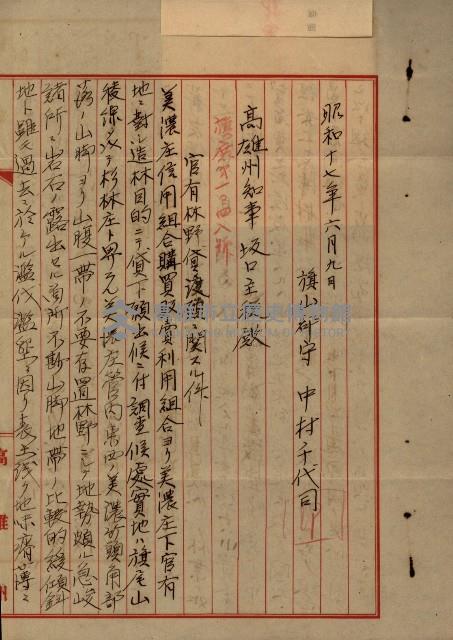 昭和十七年六月九日
旗山郡守 中村千代司
高雄州知事 坂口主税殿
官有林野貸渡ニ關スル件
美濃庄信用組合購買販賣利用組合ヨリ美濃庄下官有
地ニ對シ造林目的ニテ貸下願出候ニ付調查候處實地ハ旗尾山
稜線ヲ以テ杉林庄ト界スル
管内 美濃 頭角部
落ノ山脚ヨリ山腹一帶ノ不要存置林野ニシテ地勢頗ル急峻
諸所ニ岩石ノ露出セル箇所 山脚地帶ノ比較的緩傾斜
地ト雖モ過去ニ於ケル濫伐 ニ因リ表土 地味瘠薄ニ
高雄州